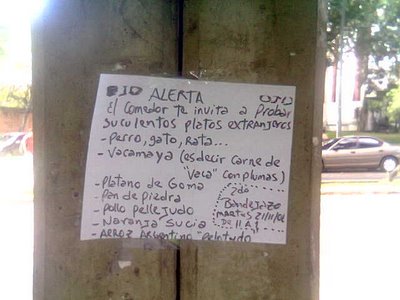 OJO ALERTA OJO
El Comedor te invita a Probar
suculentos platos extranjeros
- perro, gato, rata...
- vacamaya (es decir carne de
"vaca" con plumas)
- Platano de Goma
- Pan de piedra
- pollo pellejudo
- Naranja Sucia
- Arroz Argentino "Pelotudo
2do
Bandejazo
martes 21/11/06